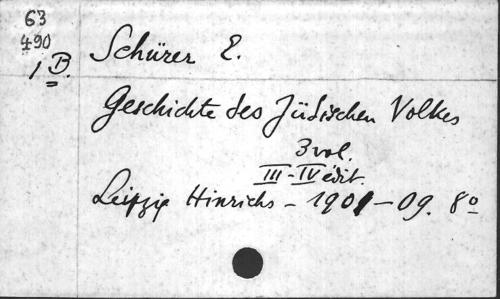 63
490
1 B.
Schürer E.
Geschichte des Jüdischen Volkes
3 vol.
III-IV édit.
Leipzig Hinrichs - 1901-09. 8º